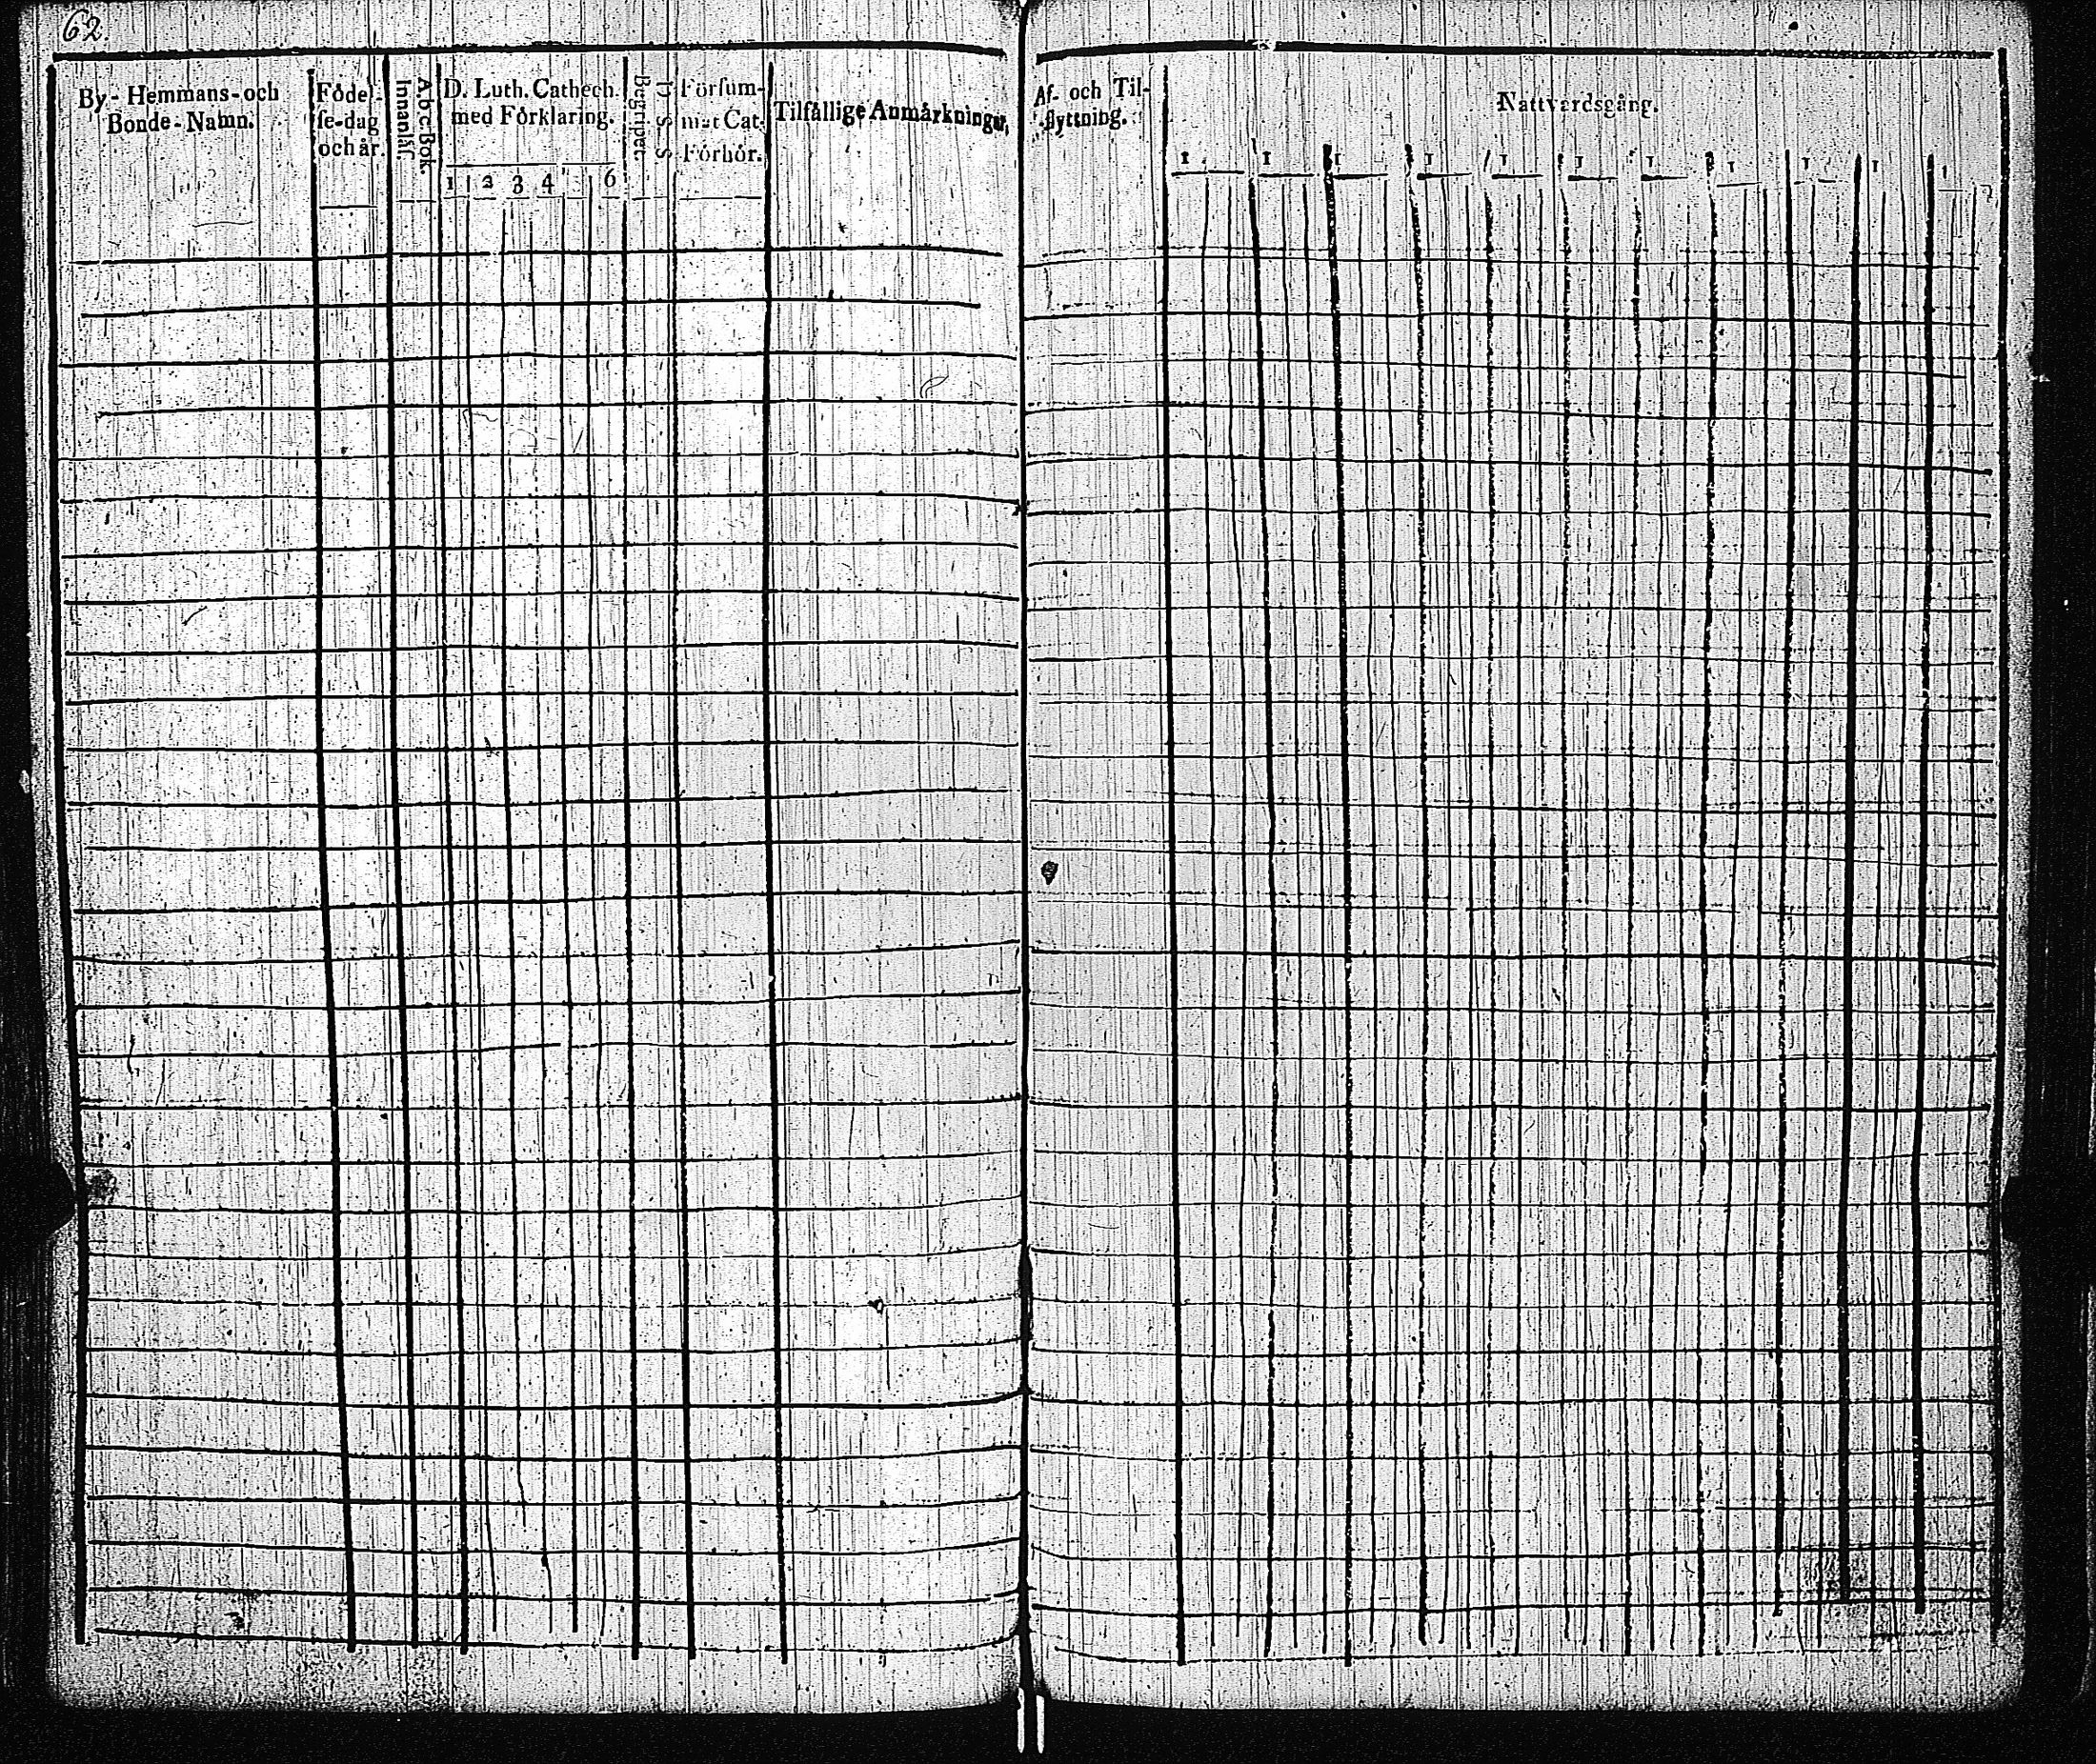 62.
By- Hemmans- och
Bonde- Namn.
Födel-
se-dag
och år.
A.b.c.Bok.
Innanläs.
D. Luth. Cathech.
med Förklaring.
1 2 3 4 6
Begripet.
Försum-
mat Cat.
Förhör.
Tilfällige Anmärkningar,
Af- och Til-
flyttning.
Nattvardsgång.
1 1 1 1 1 1 1 1 1 1 1